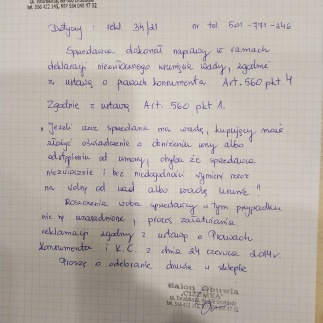 Dotyczy : rekl. 34/21 nr tel. 501-771-246
Sprzedawca dokonał naprawy w ramach
deklaracji niezwłocznego usunięcia wady, zgodnie
z ustawą o prawach konsumenta Art. 560 pkt 4
Zgodnie z ustawą Art. 560 pkt 1.
„Jeżeli rzecz sprzedana ma wadę, kupujący może
złożyć oświadczenie o obniżeniu ceny albo
odstąpieniu od umowy, chyba że sprzedawca
niezwłocznie i bez niedogodności wymieni rzecz
na wolną od wad albo wadę usunie"
Roszczenia wobec sprzedawcy w tym przypadku
nie są uzasadnione, proces załatwiania
reklamacji zgodny z ustawą o Prawach
Konsumenta i K.C. z dnia 24 czerwca 2014r.
Proszę o odebranie obuwia w sklepie
Salon Obuwia
"CIŻEMKA"